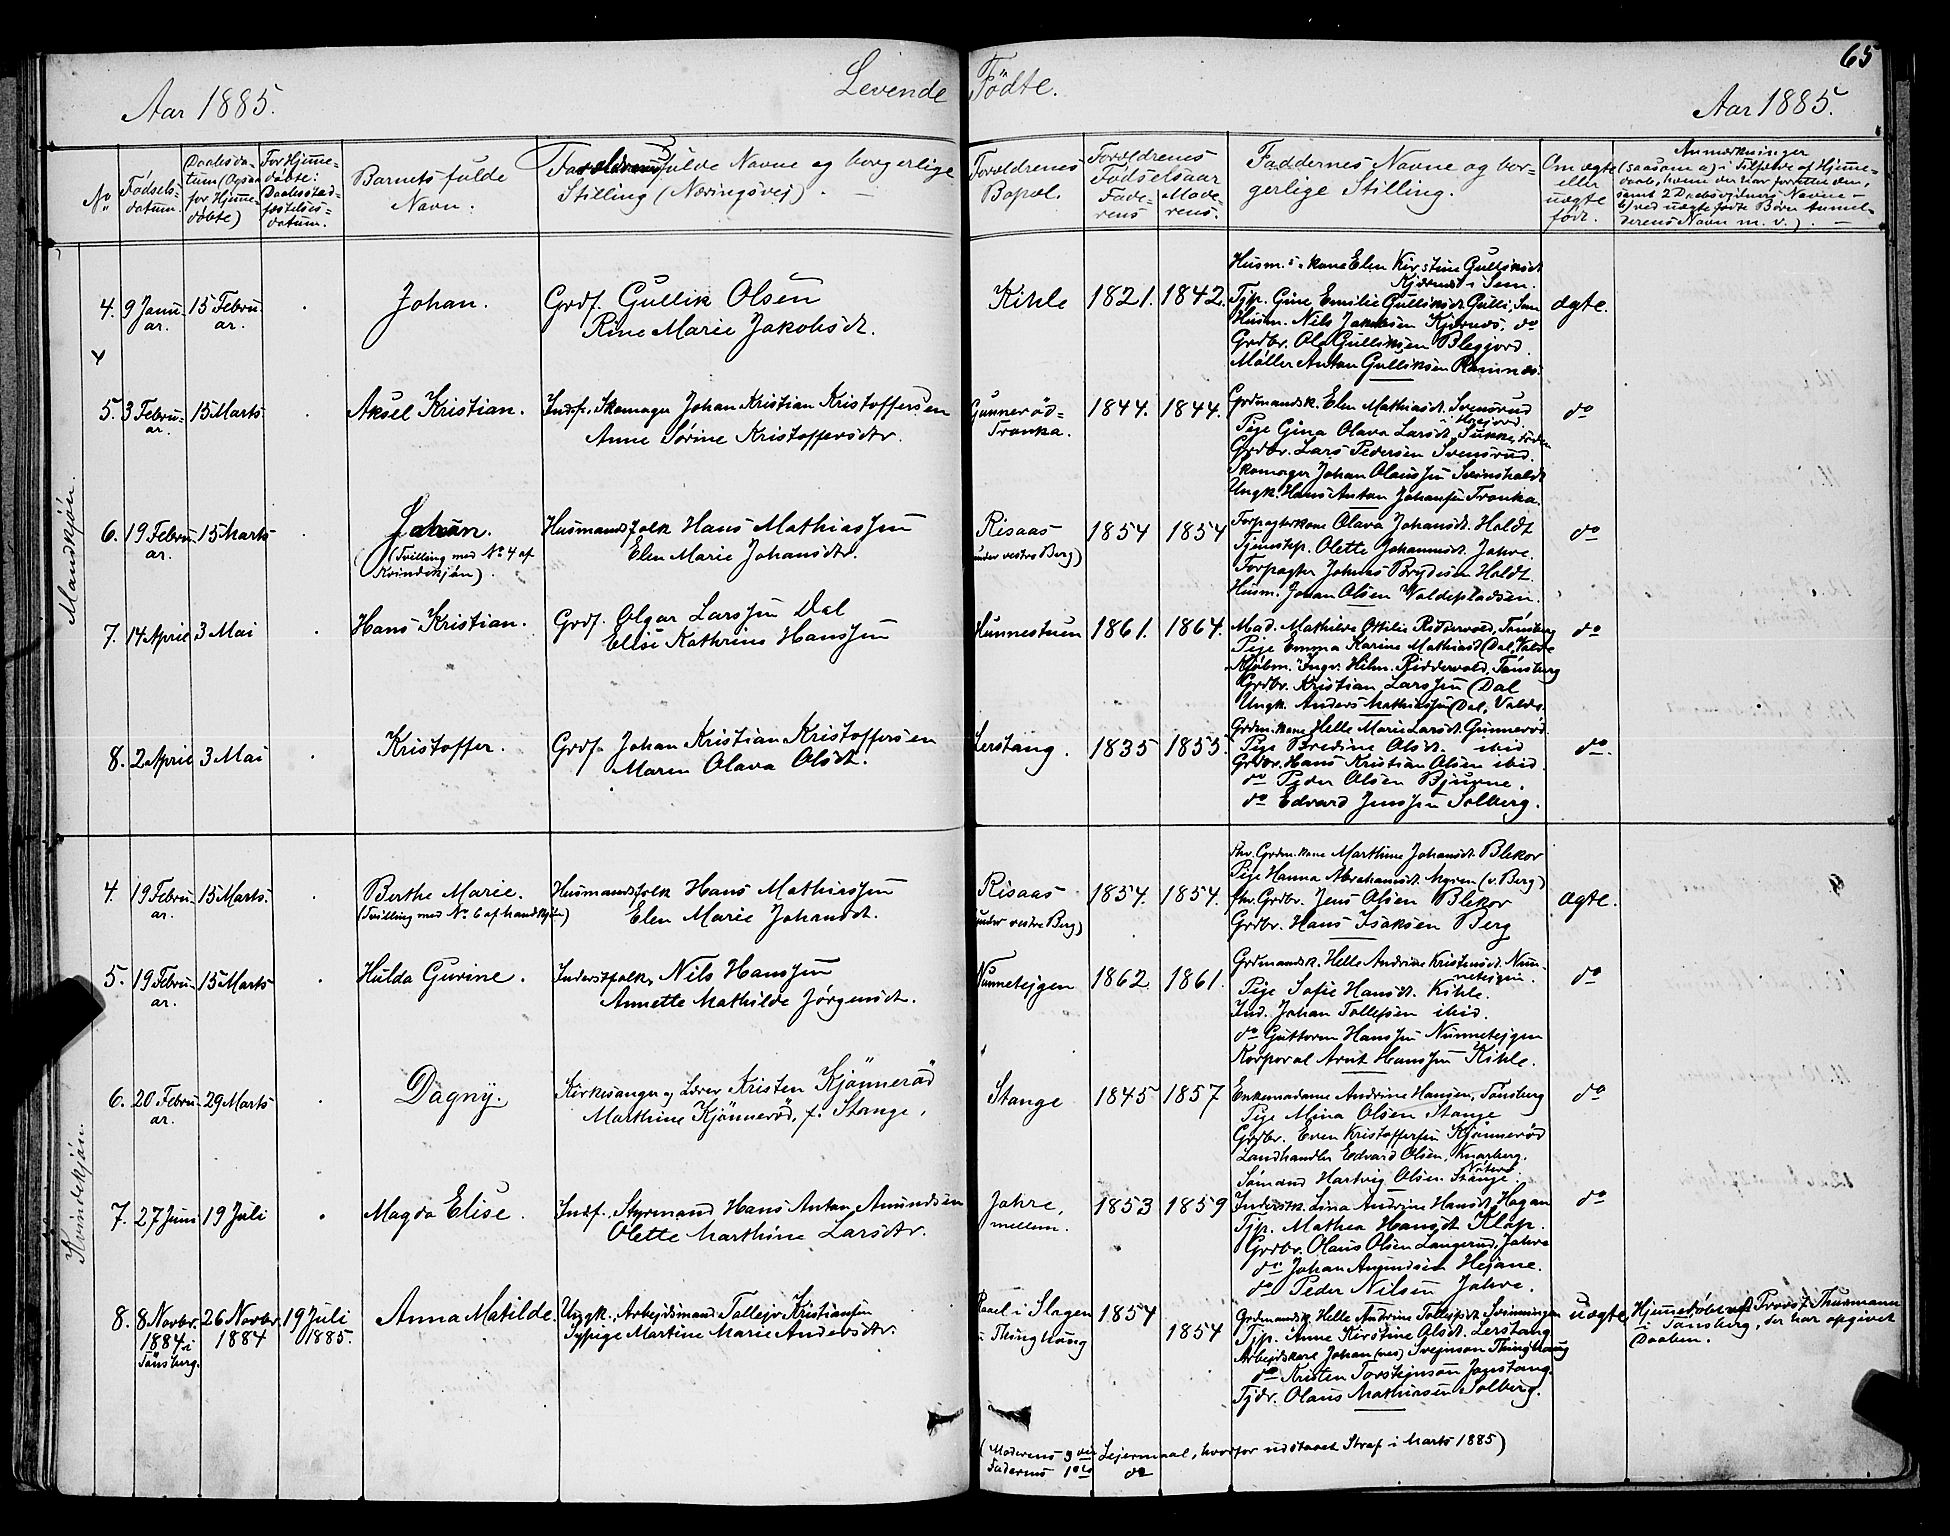 65
Levende Födte.
Aar 1885.
Aar 1885.
No
Födsels-
datum.
Daabsda-
tum (Ogsaa
for Hjemme-
döbte)
For Hjemme-
döbte:
Daabsstad-
fæstelses-
datum.
Barnets fulde
Navn.
Forældrenes fulde Navne og borgerlige
Stilling (Næringsvej). —
Forældrenes
Bopæl.
Forældrenes
Födselsaar
Fade-
rens
Mode-
rens.
Faddernes Navne og bor-
gerlige Stilling.
Om ægte
eller
uægte
født.
Anmærkninger
(saasom a) i Tilfælde af Hjemme-
daab, hvem der har forrettet den,
samt 2 Daabsvidners Navne —
b) ved uægte fødte Børn Anmel-
derens Navn m. v.). —
Mandkjön.
4. 9 Janu-
ar.
15 Febru-
ar.
Johan.
Grdf. Gullik Olsen
Rine Marie Jakobsdt.
Kihle
1821. 1842.
Husm.s kone Elen Kirstine Gulliksdt
Kjærnes i Sem.
Tjp. Gine Emilie Gulliksdt Gulli, Sem
Husm. Nils Jakobsen Kjærnes, do
Grdbr. Ole Gulliksen Blegjord.
Møller Anton Gulliksen Ramnes.
ægte.
4
5. 3 Febru-
ar.
15 Marts
Aksel Kristian.
Indf. Skomager Johan Kristian Kristoffersen
Anne Sörine Kristoffersdtr.
Gunneröd-
Tronka.
1844. 1844.
Grdmandsk. Elen Mathiasdt. Svensrud
Pige Gina Olava Larsdt. Sukke,
Grdbr. Lars Pedersen Svensrud.
Skomager Johan Olaussen
Ungk. Hans Anton Johansen Tronka.
do
6. 19 Febru-
ar.
15 Marts
Johan.
(Tvilling med No 4 af
Kvindekjön).
Husmandsfolk Hans Mathiassen
Elen Marie Johansdtr.
Risaas
(under vestre Berg)
1854 1854
Forpagterkone Olava Johansdt. Holdt
Tjenestep. Olette Johannesdt. Jahre.
Forpagter Johnes Brydesen Holdt.
Husm. Johan Olsen Valdepladsen.
do
7. 14 April 3 Mai
Hans Kristian.
Grdf. Olgar Larssen Dal
Elise Kathrine Hanssen
Hunnestuen
1861. 1864.
Mad. Mathilde Ottilie Riddervold, Tönsberg
Pige Emma Karine Mathiasd Dal, Valde
Kjøbm. Ingv. Hilm. Riddervold, Tönsberg
Grdbr. Kristian Larssen Dal
Ungk. Anders Mathiassen Dal, Valde.
do
8. 2 April 3 Mai
Kristoffer.
Grdf. Johan Kristian Kristoffersen
Maren Olava Olsdt.
Lerstang.
1835 1855.
Grdm.kone Helle Marie Larsdt. Gunneröd
Pige Bredine Olsdt. ibid
Grdbr. Hans Kristian Olsen ibid.
do Peder Olsen Bjuerne.
do Edvard Jenssen Solberg.
do.
Kvindekjön.
4. 19 Febru-
ar.
15 Marts.
Berthe Marie.
(Tvilling med No 6 af Mandkjön)
Husmandsfolk Hans Mathiassen
Elen Marie Johansdt.
Risaas
(under vestre Berg)
1854. 1854.
fhv. Grdm.kone Marthine Johansdt. Blekor
Pige Hanna Abrahamsdt. Myren (v. Berg)
fhv. Grdbr. Jens Olsen Blekor
Grdbr. Hans Isaksen Berg
ægte.
5. 19 Febru-
ar.
15 Marts
Hulda Gurine.
Inderstfolk, Nils Hanssen
Annette Mathilde Jörgensdt.
Nunnetejgen
1862 1861.
Grdmandsk. Helle Andrine Kristensdt. Nun-
netejgen.
Pige Sofie Hansdt. Kihle.
Ind. Johan Tollefsen ibid.
do Guttorm Hanssen Nunnetejgen
Korporal Arnt Hanssen Kihle.
do
6. 20 Febru-
ar.
29 Marts
Dagny.
Kirkesanger og Lærer Kristen Kjönneröd
Marthine Kjönneröd, f. Stange.
Stange
1845 1857
Enkemadame Andrine Hansen, Tönsberg
Pige Mina Olsen Stange
Grdbr. Even Kristoffersen Kjönneröd
Landhandler Edvard Olsen, Knarberg,
Nöterö.
Sömand Hartvig Olsen Stange.
do
7. 27 Juni 19 Juli
Magda Elise.
Indf. Styrmand Hans Anton Amundsen
Olette Marthine Larsdtr.
Jahre,
mellem.
1853 1859
Inderstk. Lina Andrine Hansdt. Hagan
Tjp. Mathea Hansdt. Kløp.
Grdbr. Olaus Olsen Langerud, Jahre
do Johan Amundsen Hejane.
do Peder Nilsen Jahre.
do
8. 8 Novbr.
1884 i
Tönsberg.
26 Novbr
1884
19 Juli
1885.
Anna Matilde.
Ungk. Arbejdsmand Tollejv Kristiansen
Sypige Martine Marie Andersdtr.
Raael i Slagen
i Thinghaug
1854
1854
Grdmandsk. Helle Andrine Tollefsdt. Sverningen
Tjp. Anne Kirstine Olsdt. Lerstang
Arbejdskarl Johan (nes) Svejnson Thinghaug
do Kristen Torstejnson Jonstang.
Tjdr. Olaus Mathiasen Solberg.
uægte
Hjemmedøbt af Provst Thurmann
i Tönsberg, der har opgivet
Daaben.
(Moderens 3die Lejermaal, hvorfor udstaaet Straf i Marts 1885)
Faderens 1ste do